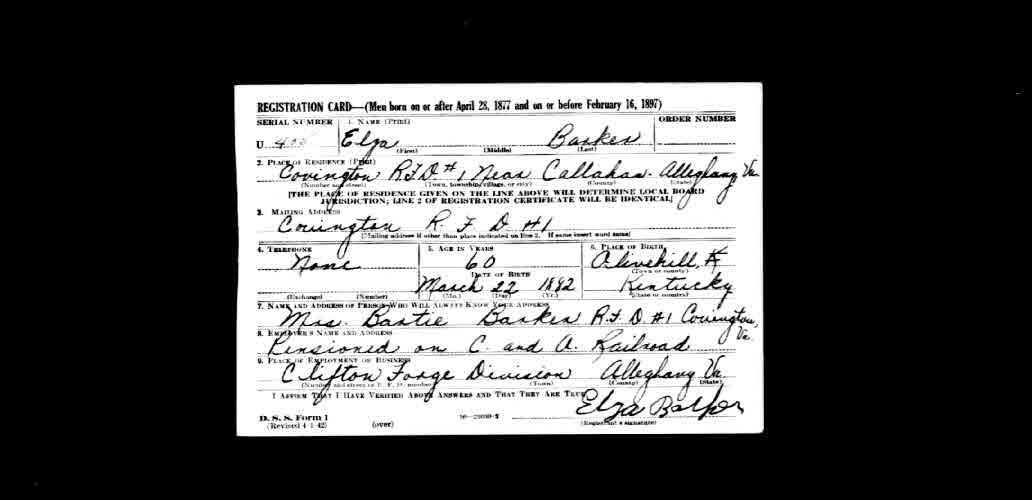 REGISTRATION CARD—(Men born on or after April 28, 1877 and on or before February 16, 1897)
SERIAL NUMBER 1. NAME (Print) ORDER NUMBER
U Elza Barker
(First) (Middle) (Last)
2. PLACE OF RESIDENCE (Print)
Covington R.F.D. #1 Near Callahan- Alleghany Va.
(Number and street) (Town, township, village, or city) (County) (State)
[THE PLACE OF RESIDENCE GIVEN ON THE LINE ABOVE WILL DETERMINE LOCAL BOARD
JURISDICTION; LINE 2 OF REGISTRATION CERTIFICATE WILL BE IDENTICAL]
3. MAILING ADDRESS
Covington R. F D #1
[Mailing address if other than place indicated on line 2. If same insert word same]
4. TELEPHONE 5. AGE IN YEARS 6. PLACE OF BIRTH
None 60 Olivehill,
(Town or county)
DATE OF BIRTH
March 22 1882 Kentucky
(Exchange) (Number) (Mo.) (Day) (Yr.) (State or country)
7. NAME AND ADDRESS OF PERSON WHO WILL ALWAYS KNOW YOUR ADDRESS
Mrs. Bartie Barker R.F.D #1 Covington, Va.
8. EMPLOYER'S NAME AND ADDRESS
Pensioned on C. and O. Railroad
9. PLACE OF EMPLOYMENT OR BUSINESS
Clifton Forge Division Alleghany Va.
(Number and street or R. F. D. number) (Town) (County) (State)
I AFFIRM THAT I HAVE VERIFIED ABOVE ANSWERS AND THAT THEY ARE TRUE.
Elza Barker
D. S. S. Form 1
(Revised 4-1-42) (over) (Registrant's signature)